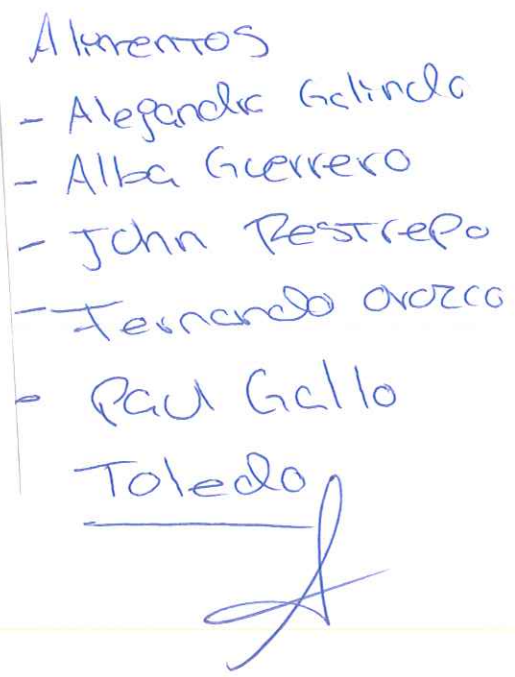 Alimentos
- Alejandra Galindo
- Alba Guerrero
- John Restrepo
- Fernando Orozco
- Paul Gallo
Toledo